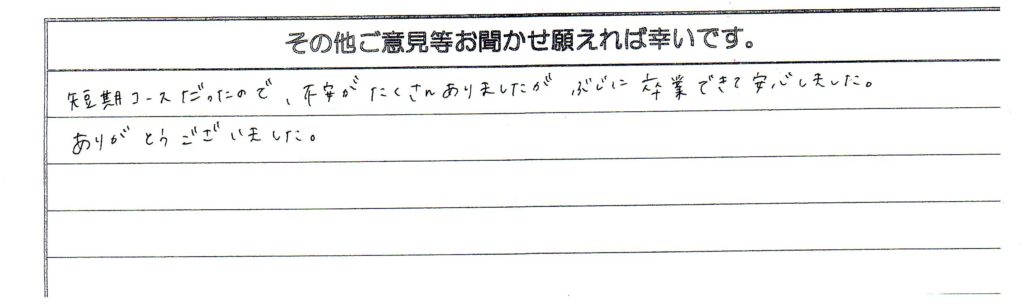 その他ご意見等お聞かせ願えれば幸いです。
短期コースだったので、不安がたくさんありましたが ぶじに卒業できて安心しました。
ありがとうございました。